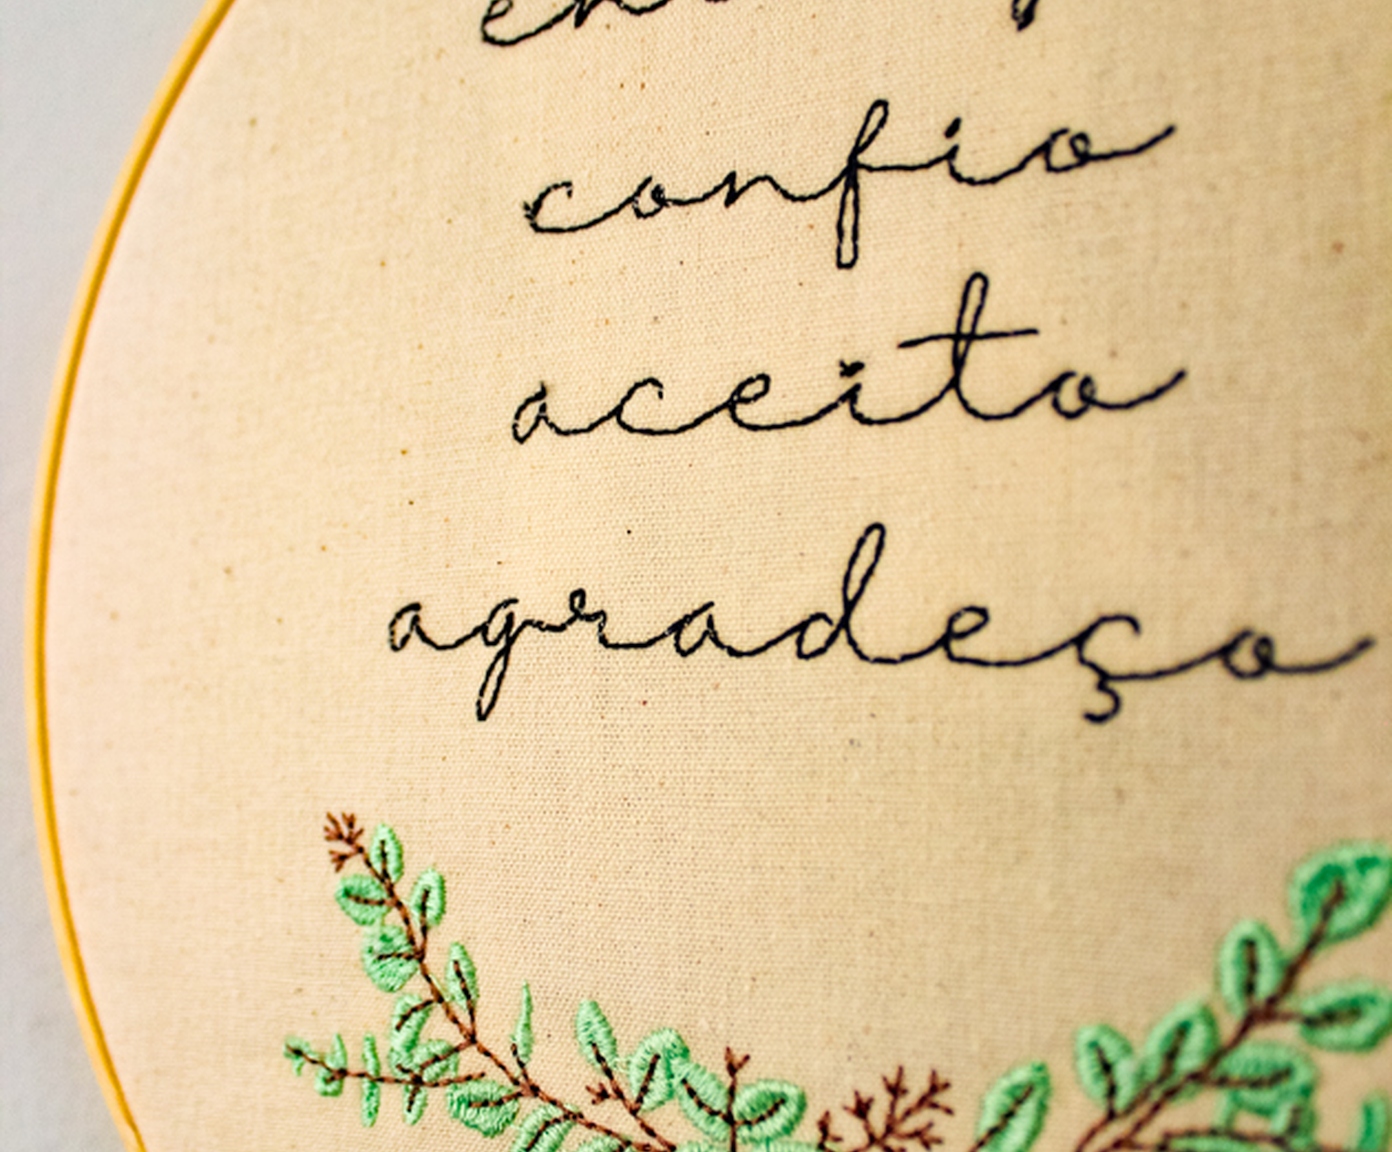 confio
aceito
agradeço